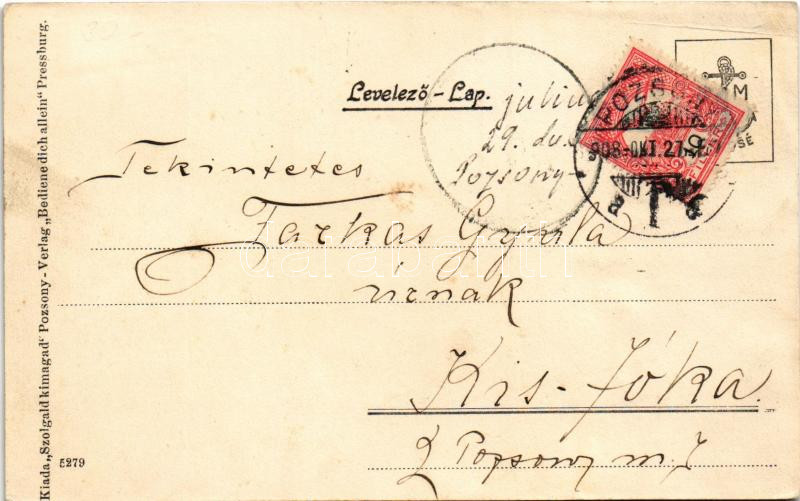 Kiada „Szolgald kimagad" Pozsony - Verlag „Bediene dich allein" Pressburg.
Levelező - Lap.
julius
29.
Pozsony
POZSONY
908-OKT. 27
Tekintetes
Farkas Gyula
úrnak
Kis-Jóka.
Pozsony m.
5279
darabanth